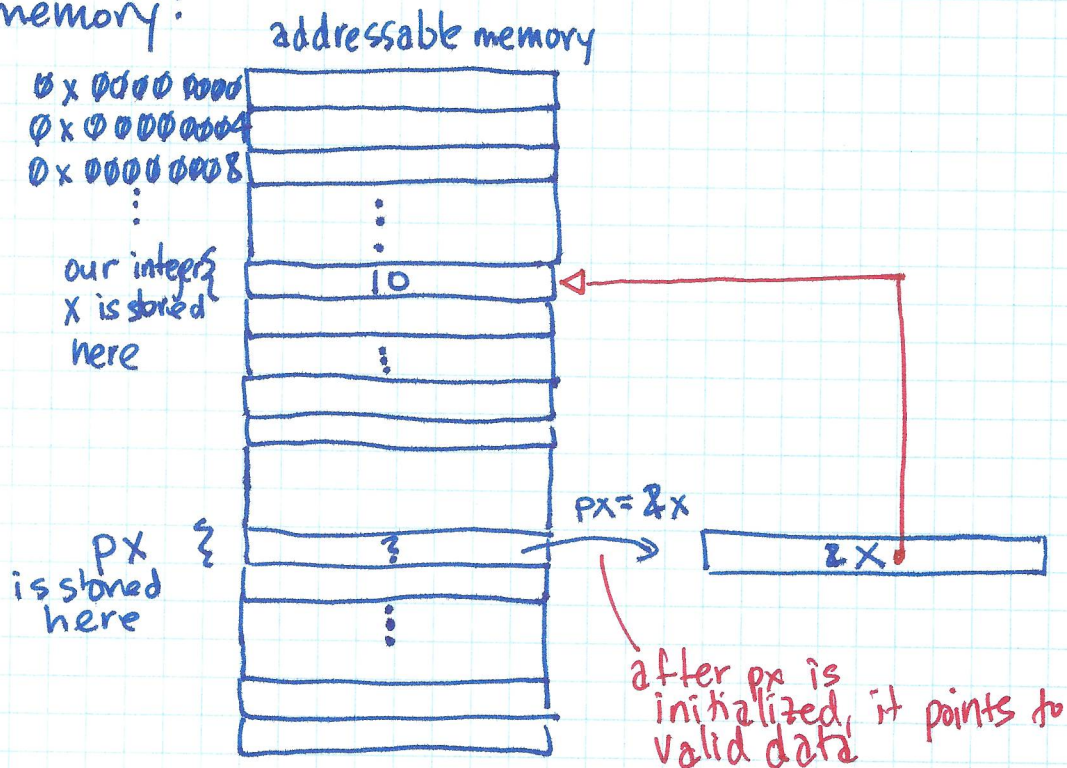 memory:
addressable memory
0x00000000
0x00000004
0x00000008
our integer
x is stored
here
10
px = &x
px
is stored
here
?
&x
after px is
initialized, it points to
valid data